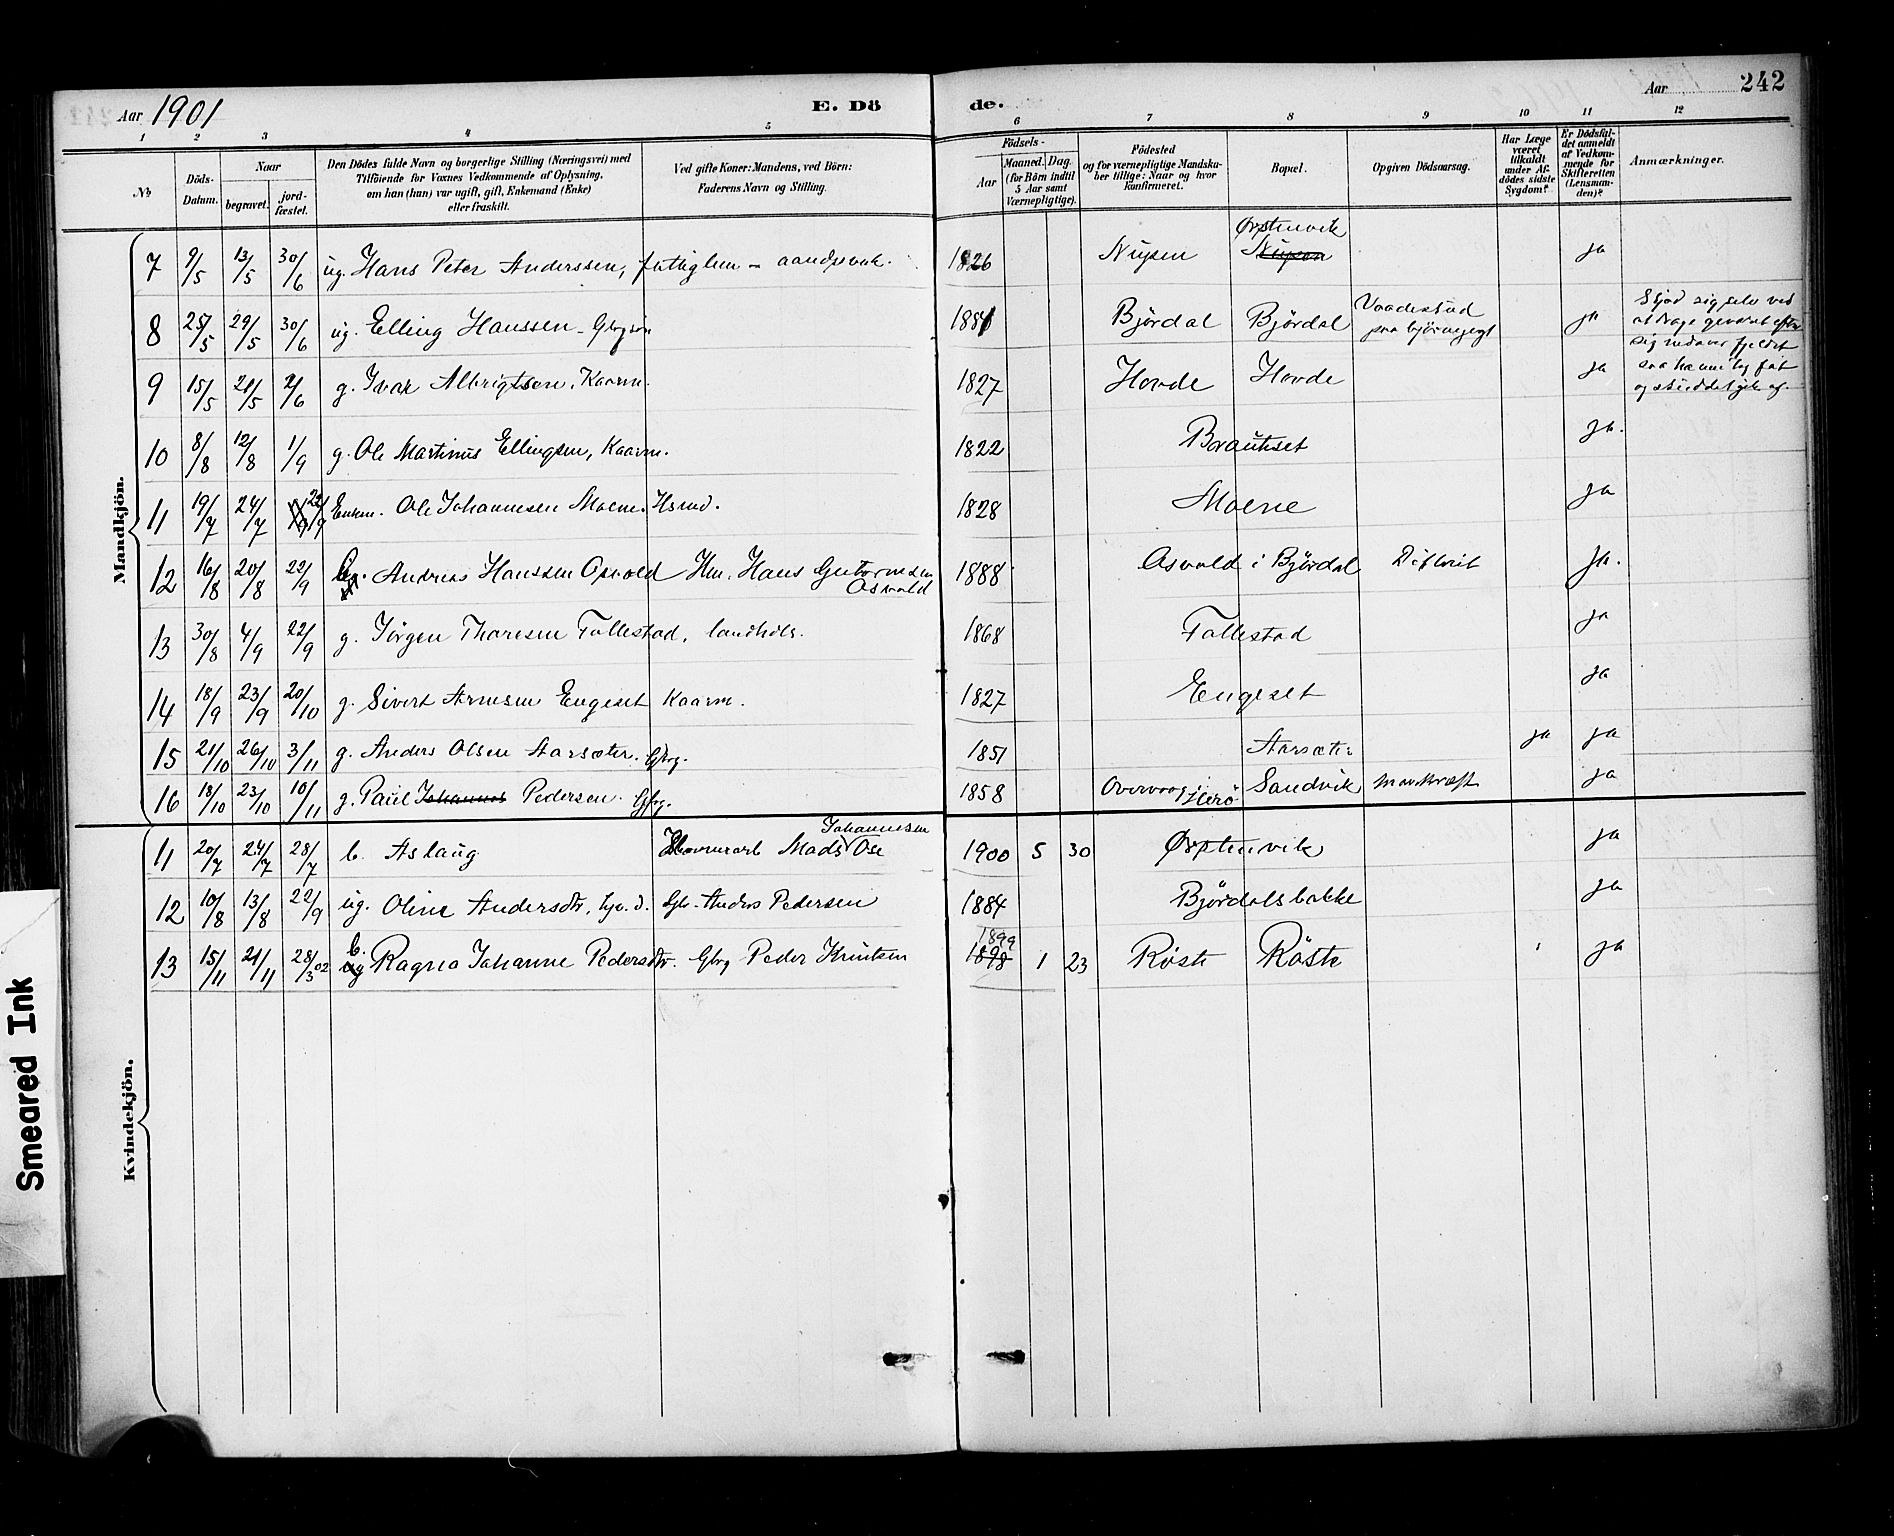 Aar 1901
E. Dö
de.
Aar
242
1 2 3 4 5 6 7 8 9 10 11 12
No
Döds-Datum.
Naar
begravet.
jord-fæstet.
Den Dödes fulde Navn og borgerlige Stilling (Næringsvei) med
Tilföiende for Voxnes Vedkommende af Oplysning,
om han (hun) var ugift, gift, Enkemand (Enke)
eller fraskilt.
Ved gifte Koner: Mandens, ved Börn:
Faderens Navn og Stilling.
Födsels-
Aar
Maaned. Dag.
(for Börn indtil
5 Aar samt
Værnepligtige).
Födested
og for værnepligtige Mandska-
ber tillige: Naar og hvor
konfirmeret.
Bopæl.
Opgiven Dödsaarsag.
Har Læge
været
tilkaldt
under Af-
dödes sidste
Sygdom?
Er Dödsfal-
det anmeldt
af Vedkom-
mende for
Skifteretten
(Lensman-
den)?
Anmærkninger.
Mandkjön.
7 9/5 13/5 30/6 ug. Hans Peter Anderssen, fattiglem - aandssvak. 1826 Nupen Ørstenvik Nupen ja
8 25/5 29/5 30/6 ug. Elling Hanssen - Gbrgsøn 1881 Bjørdal Bjørdal Vaadeskud paa bjørnejagt ja
Skjød sig selv ved
at drage geværet efter
sig nedover fjeldet
saa hanen tog fat
og skuddet gik af.
9 15/5 21/5 2/6 g. Ivar Albrigtsen, Kaarm. 1827 Hovde Hovde ja
10 8/8 12/8 1/9 g. Ole Martinus Ellingsen, Kaarm. 1822 Brauteset ja.
11 19/7 24/7 22/9 Enkem. Ole Johannesen Moene. Hsmd. 1828 Moene ja
12 16/8 20/8 22/9 b. Andreas Hanssen Osvold Hm. Hans Guttormsen Osvold 1888 Osvold i Bjørdal Difterit ja.
13 30/8 4/9 22/9 g. Jørgen Tharesen Follestad, landhdlr. 1868 Follestad ja
14 18/9 23/9 20/10 g. Sivert Arnesen Engeset Kaarm. 1827 Engeset ja
15 21/10 26/10 3/11 g. Anders Olsen Aarsæter. Gbrg. 1851 Aarsæter ja ja
16 18/10 23/10 10/11 g. Paul Johannes Pedersen. Gbrg. 1858 Overvaag i Herø Sandvik Mavekræft ja
Kvindekjön.
11 20/7 24/7 28/7 b. Aslaug Mads Johannesen Ose 1900 5 30 Ørstenvik ja
12 10/8 13/8 22/9 ug. Oline Andersdtr, Gbr. Anders Pedersen 1884 Bjørdalsbakke ja
13 15/11 21/11 28/3 02 b. ug Ragna Johanne Pedersdtr. Gbrg Peder Knutsen 1899 1898 1 23 Røste Røste ja
Smeared Ink